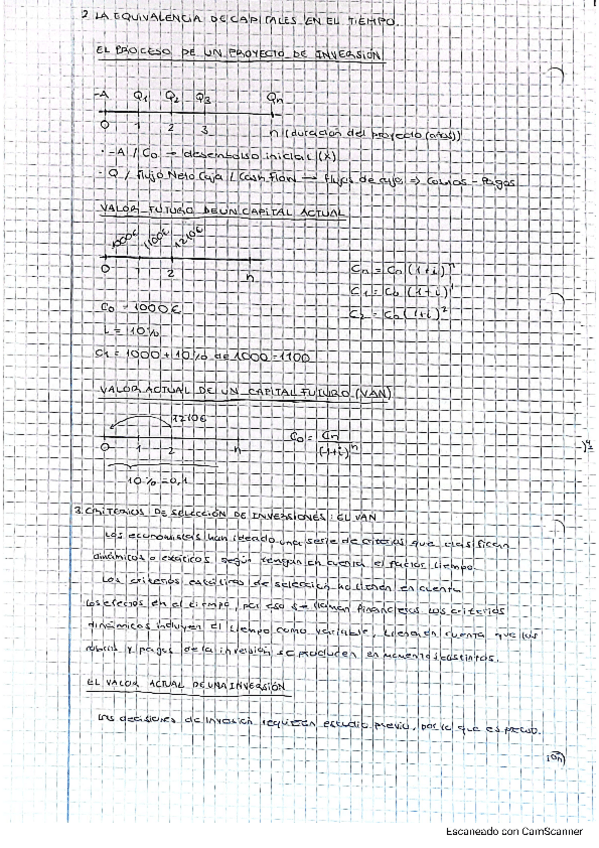 2 LA EQUIVALENCIA DE CAPITALES EN EL TIEMPO.
EL PROCESO DE UN PROYECTO DE INVERSIÓN
-A Q1 Q2 Q3 Qn
0 1 2 3 n (duración del proyecto (años))
· -A / C0 → desembolso inicial (X)
· Q / Flujo Neto Caja / Cash Flow → Flujos de caja => Cobros - Pagos
VALOR FUTURO DE UN CAPITAL ACTUAL
1000€ 1100€ 1210€
0 1 2 n
Cn = C0 (1+i)^n
C1 = C0 (1+i)^1
C2 = C0 (1+i)^2
C0 = 1000€
i = 10%
C1 = 1000 + 10% de 1000 = 1100
VALOR ACTUAL DE UN CAPITAL FUTURO (VAN)
1210€
0 1 2 n
C0 = Cn / (1+i)^n
10% = 0,1
3. CRITERIOS DE SELECCIÓN DE INVERSIONES: EL VAN
Los economistas han ideado una serie de criterios que clasifican
dinámicos o estáticos según tengan en cuenta el factor tiempo.
Los criterios estáticos de selección no tienen en cuenta
los efectos en el tiempo, por eso se llaman financieros. Los criterios
dinámicos incluyen el tiempo como variable, tienen en cuenta que los
cobros y pagos de la inversión se producen en momentos distintos.
EL VALOR ACTUAL DE UNA INVERSIÓN
Las decisiones de inversión requieren estudio previo, por lo que es preciso.
Escaneado con CamScanner